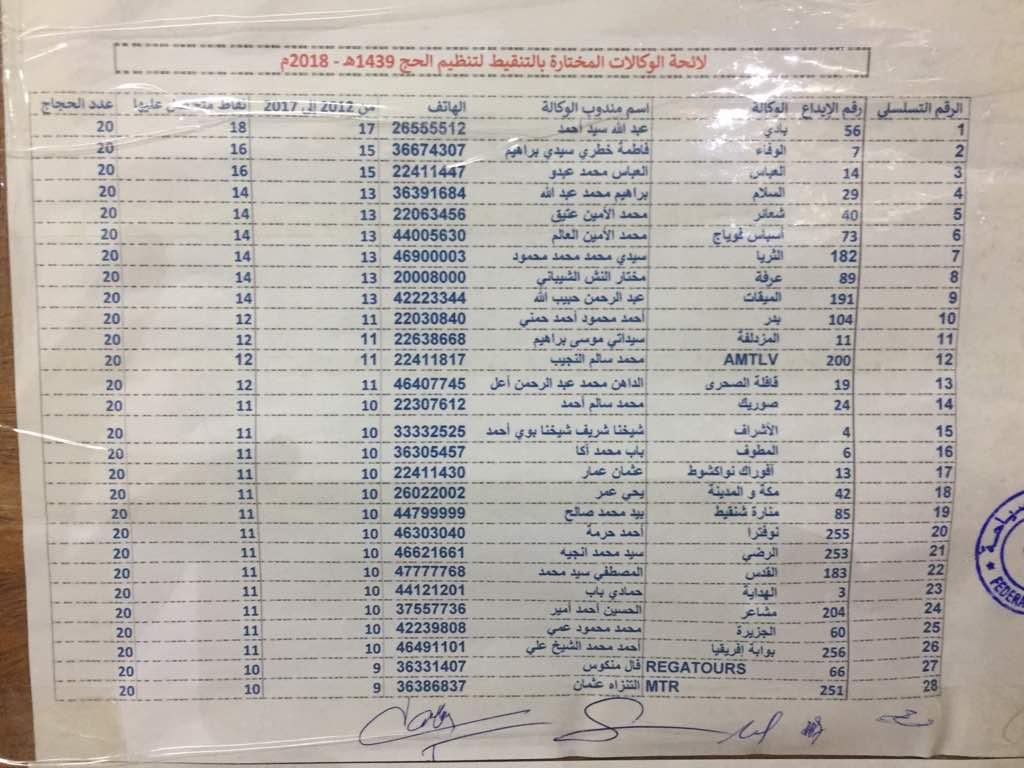 لائحة الوكالات المختارة بالتنقيط لتنظيم الحج 1439هـ - 2018م
الرقم التسلسلي رقم الإيداع الوكالة اسم مندوب الوكالة الهاتف من 2012 إلى 2017 نقاط متحصل عليها عدد الحجاج
1 56 بادي عبد الله سيد أحمد 26555512 17 18 20
2 7 الوفاء فاطمة خطري سيدي براهيم 36674307 15 16 20
3 14 العباس العباس محمد عبدو 22411447 15 16 20
4 29 السلام براهيم محمد عبد الله 36391684 13 14 20
5 40 شعائر محمد الأمين عتيق 22063456 13 14 20
6 73 أسباس فوياج محمد الأمين العالم 44005630 13 14 20
7 182 الثريا سيدي محمد محمد محمود 46900003 13 14 20
8 89 عرفة مختار النش الشيباني 20008000 13 14 20
9 191 الميقات عبد الرحمن حبيب الله 42223344 13 14 20
10 104 بدر أحمد محمود أحمد حمني 22030840 11 12 20
11 11 المزدلفة سيداتي موسى براهيم 22638668 11 12 20
12 200 AMTLV محمد سالم النجيب 22411817 11 12 20
13 19 قافلة الصحرى الداهن محمد عبد الرحمن أعل 46407745 11 12 20
14 24 صوريك محمد سالم أحمد 22307612 10 11 20
15 4 الأشراف شيخنا شريف شيخنا بوي أحمد 33332525 10 11 20
16 6 المطوف باب محمد أكا 36305457 10 11 20
17 13 أفوراك نواكشوط عثمان عمار 22411430 10 11 20
18 42 مكة و المدينة يحي عمر 26022002 10 11 20
19 85 منارة شنقيط بيد محمد صالح 44799999 10 11 20
20 255 نوفترا أحمد حرمة 46303040 10 11 20
21 253 الرضي سيد محمد انجيه 46621661 10 11 20
22 183 القدس المصطفي سيد محمد 47777768 10 11 20
23 3 الهداية حمادي باب 44121201 10 11 20
24 204 مشاعر الحسين أحمد أمير 37557736 10 11 20
25 60 الجزيرة محمد محمود عمي 42239808 10 11 20
26 256 بوابة إفريقيا أحمد محمد الشيخ علي 46491101 10 11 20
27 66 REGATOURS فال منكوس 36331407 9 10 20
28 251 MTR التنزاه عثمان 36386837 9 10 20